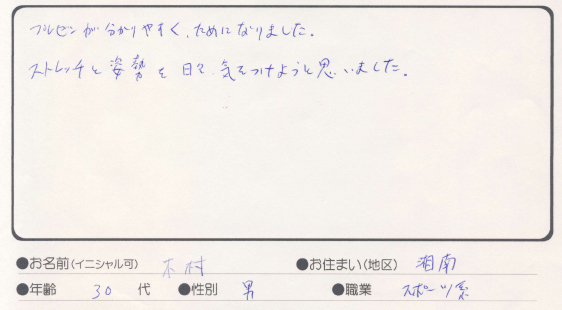 プレゼンが分かりやすく、ためになりました。
ストレッチと姿勢を日々気をつけようと思いました。
●お名前(イニシャル可) 木村 ●お住まい(地区) 湘南
●年齢 30 代 ●性別 男 ●職業 スポーツ業